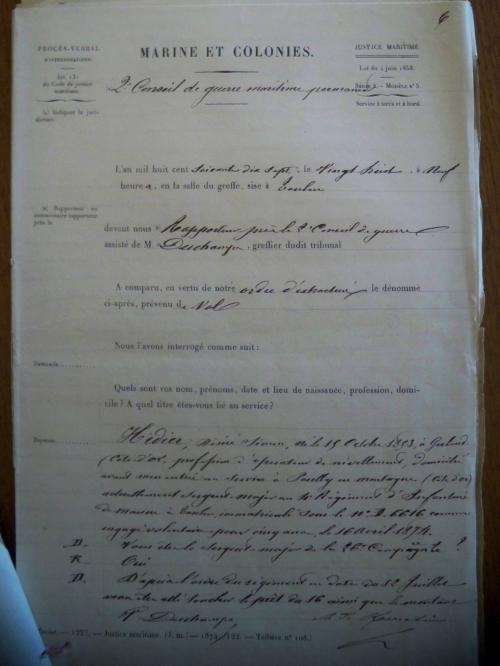 6
PROCÈS-VERBAL
D'INTERROGATOIRE.
Art. 131
du Code de justice
maritime.
MARINE ET COLONIES.
JUSTICE MARITIME
Loi du 4 juin 1858.
Série — MODÈLE n° 5.
Service à terre et à bord.
2e Conseil de guerre maritime permanent
(1) Indiquer la juridiction.
L'an mil huit cent soixante dix sept, le vingt à neuf
heures, en la salle du greffe, sise à Toulon
(2) Rapporteur ou
commissaire rapporteur
près le
devant nous Rapporteur près le 2e Conseil de guerre
assisté de M. Duchamps, greffier dudit tribunal
A comparu, en vertu de notre ordre d'extraction, le dénommé
ci-après, prévenu de Vol
Nous l'avons interrogé comme suit:
Demande
Quels sont vos nom, prénoms, date et lieu de naissance, profession, domi-
cile? A quel titre êtes-vous lié au service?
Réponse
Hédier, Simon, né le 15 Octobre 1853, à
(Côte d'or, profession d'opérateur de nivellement, domicilié
avant mon entrée au service à Pouilly en montagne (Côte d'or)
actuellement Sergent major au 4e Régiment d'Infanterie
de marine à Toulon, immatriculé sous le no 6616 comme
engagé volontaire pour cinq ans, le 16 Avril 1874.
D. Vous êtes le Sergent major de la 26e Compagnie?
R. Oui
D. D'après l'ordre du régiment en date du 12 Juillet
vous êtes allé toucher le prêt du 16 ainsi que le montant
Duchamps
— 1227. — Justice maritime. (J. m.) — 187 (122. — Tellière n° 108.)